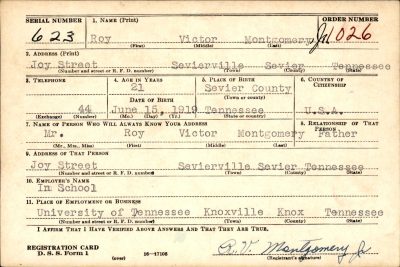 SERIAL NUMBER 1. NAME (Print) ORDER NUMBER
623 Roy Victor Montgomery Jr 1026
(First) (Middle) (Last)
2. ADDRESS (Print)
Joy Street Sevierville Sevier Tennessee
(Number and street or R. F. D. number) (Town) (County) (State)
3. TELEPHONE 4. AGE IN YEARS 5. PLACE OF BIRTH 6. COUNTRY OF CITIZENSHIP
21 Sevier County
DATE OF BIRTH (Town or county)
44 June 15, 1919 Tennessee U.S.A.
(Exchange) (Number) (Mo.) (Day) (Yr.) (State or country)
7. NAME OF PERSON WHO WILL ALWAYS KNOW YOUR ADDRESS 8. RELATIONSHIP OF THAT PERSON
Mr. Roy Victor Montgomery Father
(Mr., Mrs., Miss) (First) (Middle) (Last)
9. ADDRESS OF THAT PERSON
Joy Street Sevierville Sevier Tennessee
(Number and street or R. F. D. number) (Town) (County) (State)
10. EMPLOYER'S NAME
In School
11. PLACE OF EMPLOYMENT OR BUSINESS
University of Tennessee Knoxville Knox Tennessee
(Number and street or R. F. D. number) (Town) (County) (State)
I AFFIRM THAT I HAVE VERIFIED ABOVE ANSWERS AND THAT THEY ARE TRUE.
REGISTRATION CARD
D. S. S. Form 1 (over) 16—17105 R. V. Montgomery Jr
(Registrant's signature)